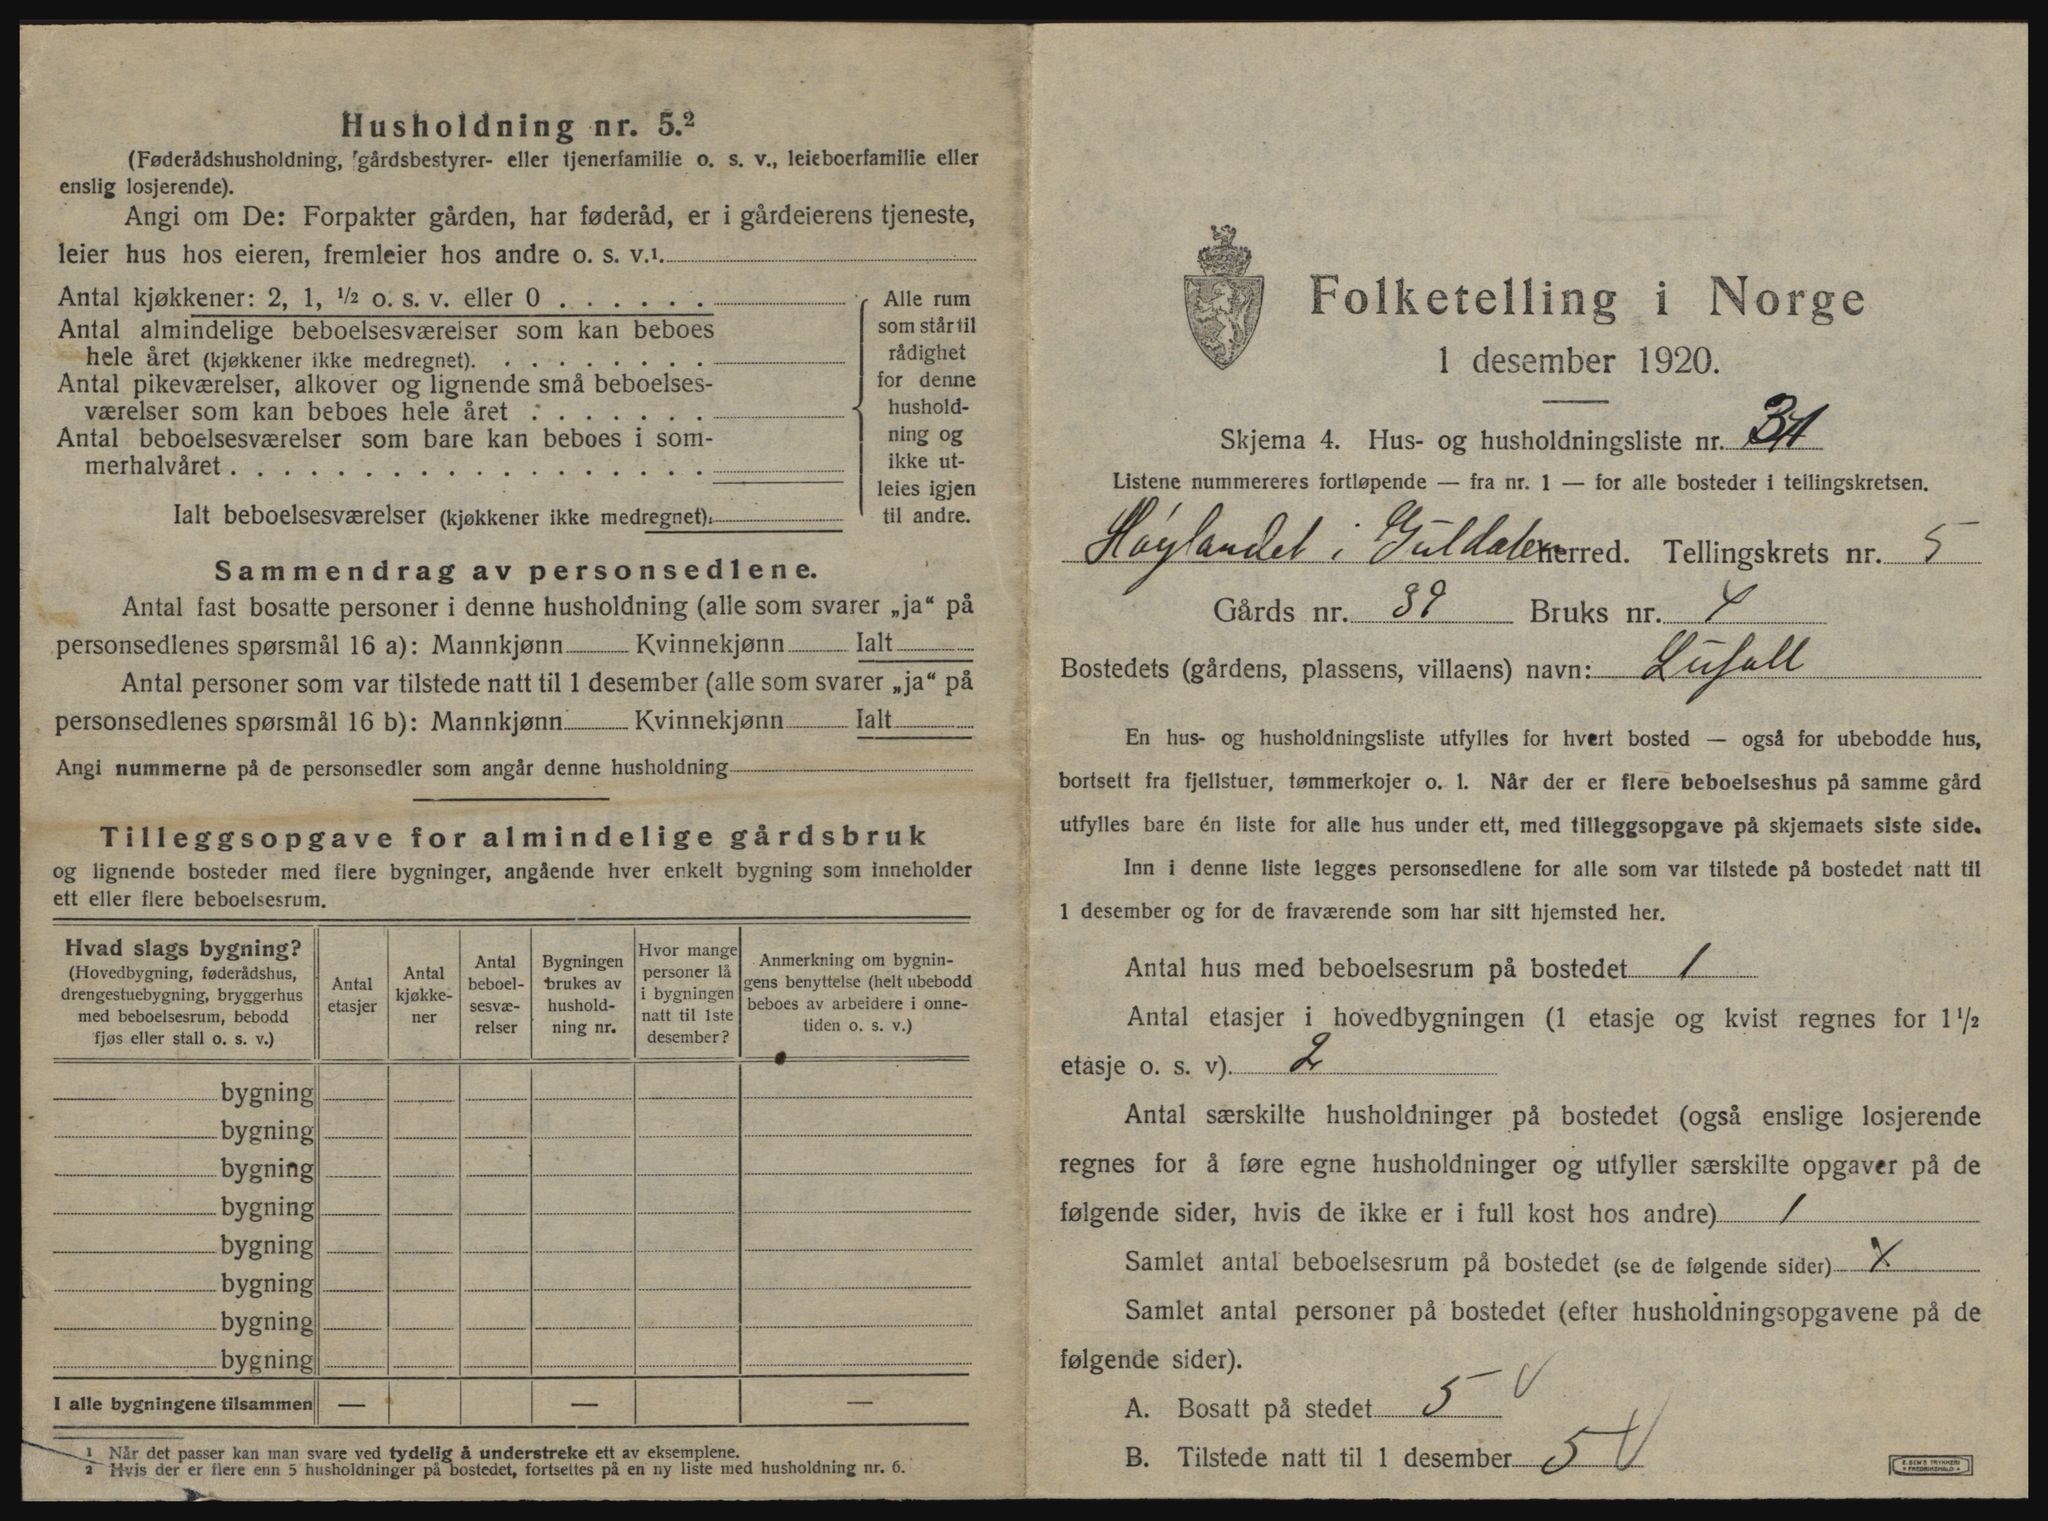 Husholdning nr. 5.²
(Føderådshusholdning, gårdsbestyrer- eller tjenerfamilie o. s. v., leieboerfamilie eller
enslig losjerende).
Angi om De: Forpakter gården, har føderåd, er i gårdeierens tjeneste,
leier hus hos eieren, fremleier hos andre o. s. v.¹
Antal kjøkkener: 2, 1, ½ o. s. v. eller 0 . . . . . .
Antal almindelige beboelsesværelser som kan beboes
hele året (kjøkkener ikke medregnet). . . . . . . . .
Antal pikeværelser, alkover og lignende små beboelses-
værelser som kan beboes hele året . . . . . . .
Antal beboelsesværelser som bare kan beboes i som-
merhalvåret . . . . . . . . . . . . . . . . . .
Ialt beboelsesværelser (kjøkkener ikke medregnet):
Alle rum
som står til
rådighet
for denne
hushold-
ning og
ikke ut-
leies igjen
til andre.
Sammendrag av personsedlene.
Antal fast bosatte personer i denne husholdning (alle som svarer „ja“ på
personsedlenes spørsmål 16 a): Mannkjønn Kvinnekjønn Ialt
Antal personer som var tilstede natt til 1 desember (alle som svarer „ja“ på
personsedlenes spørsmål 16 b): Mannkjønn Kvinnekjønn Ialt
Angi nummerne på de personsedler som angår denne husholdning
Tilleggsopgave for almindelige gårdsbruk
og lignende bosteder med flere bygninger, angående hver enkelt bygning som inneholder
ett eller flere beboelsesrum.
Hvad slags bygning?
(Hovedbygning, føderådshus,
drengestuebygning, bryggerhus
med beboelsesrum, bebodd
fjøs eller stall o. s. v.)
Antal
etasjer
Antal
kjøkke-
ner
Antal
beboel-
sesvæ-
relser
Bygningen
brukes av
hushold-
ning nr.
Hvor mange
personer lå
i bygningen
natt til 1ste
desember?
Anmerkning om bygnin-
gens benyttelse (helt ubebodd
beboes av arbeidere i onne-
tiden o. s. v.)
bygning
bygning
bygning
bygning
bygning
bygning
bygning
bygning
I alle bygningene tilsammen — — —
¹ Når det passer kan man svare ved tydelig å understreke ett av eksemplene.
² Hvis der er flere enn 5 husholdninger på bostedet, fortsettes på en ny liste med husholdning nr. 6.
Folketelling i Norge
1 desember 1920.
Skjema 4. Hus- og husholdningsliste nr.
Listene nummereres fortløpende — fra nr. 1 — for alle bosteder i tellingskretsen.
Høylandet i Guldalen herred. Tellingskrets nr. 5
Gårds nr. 39 Bruks nr. 4
Bostedets (gårdens, plassens, villaens) navn:
En hus- og husholdningsliste utfylles for hvert bosted — også for ubebodde hus,
bortsett fra fjellstuer, tømmerkojer o. l. Når der er flere beboelseshus på samme gård
utfylles bare én liste for alle hus under ett, med tilleggsopgave på skjemaets siste side.
Inn i denne liste legges personsedlene for alle som var tilstede på bostedet natt til
1 desember og for de fraværende som har sitt hjemsted her.
Antal hus med beboelsesrum på bostedet 1
Antal etasjer i hovedbygningen (1 etasje og kvist regnes for 1½
etasje o. s. v). 2
Antal særskilte husholdninger på bostedet (også enslige losjerende
regnes for å føre egne husholdninger og utfyller særskilte opgaver på de
følgende sider, hvis de ikke er i full kost hos andre) 1
Samlet antal beboelsesrum på bostedet (se de følgende sider)
Samlet antal personer på bostedet (efter husholdningsopgavene på de
følgende sider).
A. Bosatt på stedet 5
B. Tilstede natt til 1 desember 5
E. SEM'S TRYKKERI
FREDRIKSHALD